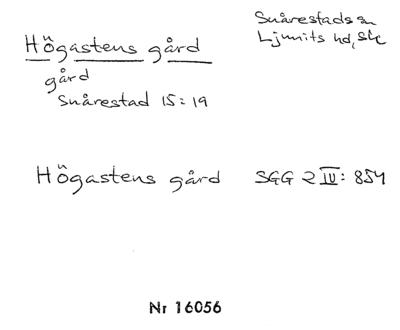 Högastens gård
Snårestads sn
Ljunits hd, Sk
gård
Snårestad 15:19
Högastens gård SGG 2 IV: 854
Nr 16056